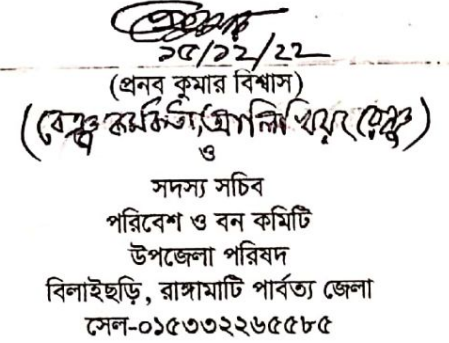 ১৫/১২/২২
(প্রনব কুমার বিশ্বাস)
(রেঞ্জ কর্মকর্তা, আলিখিয়ং রেঞ্জ)
ও
সদস্য সচিব
পরিবেশ ও বন কমিটি
উপজেলা পরিষদ
বিলাইছড়ি, রাঙ্গামাটি পার্বত্য জেলা
সেল-০১৫৩৩২২৬৫৫৮৫